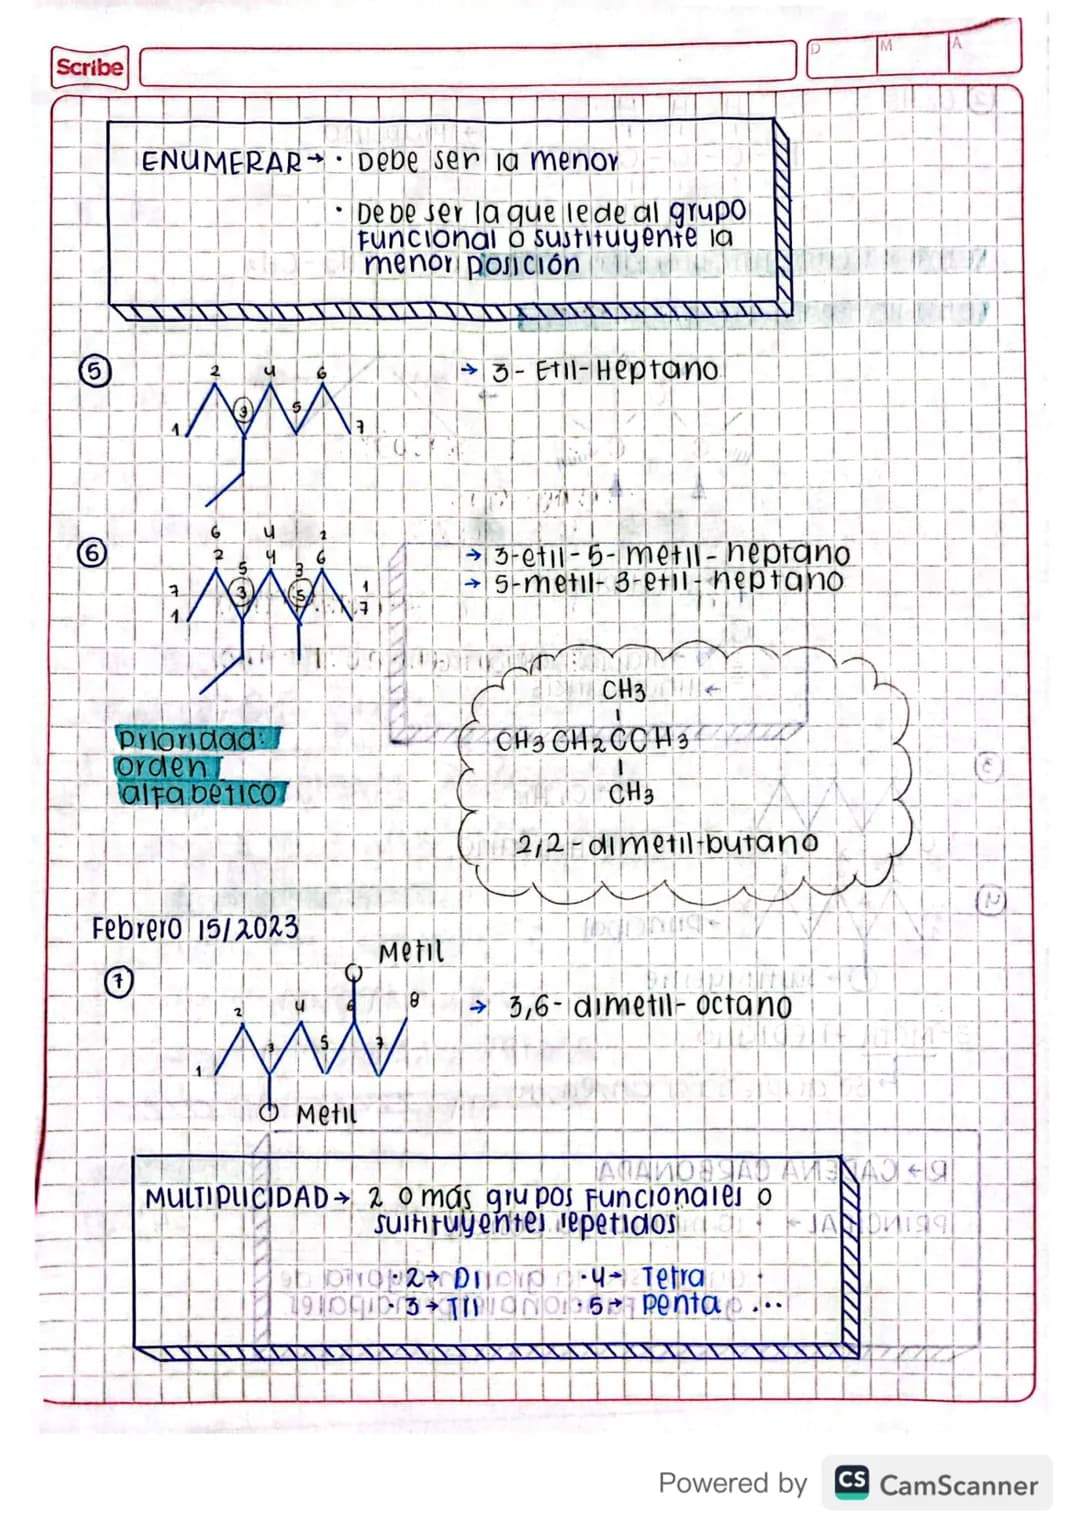 Scribe
D M A
ENUMERAR → • Debe ser la menor
• Debe ser la que le de al grupo
Funcional o sustituyente la
menor posición
5
2 4 6
1 3 5 7
→ 3-Etil-Heptano
6
6 4 2
2 5 4 3 6
7 3 5 1
1 7
→ 3-etil-5-metil-heptano
→ 5-metil-3-etil-heptano
prioridad:
orden
alfabético
CH3
CH3 CH2 CCH3
CH3
2,2-dimetil-butano
Febrero 15/2023
Metil
7
2 4 6 8
1 3 5 7
→ 3,6-dimetil-octano
Metil
MULTIPLICIDAD → 2 o más grupos Funcionales o
sustituyentes repetidos
• 2 → Di • 4 → Tetra
• 3 → Tri • 5 → Penta ...
Powered by CS CamScanner